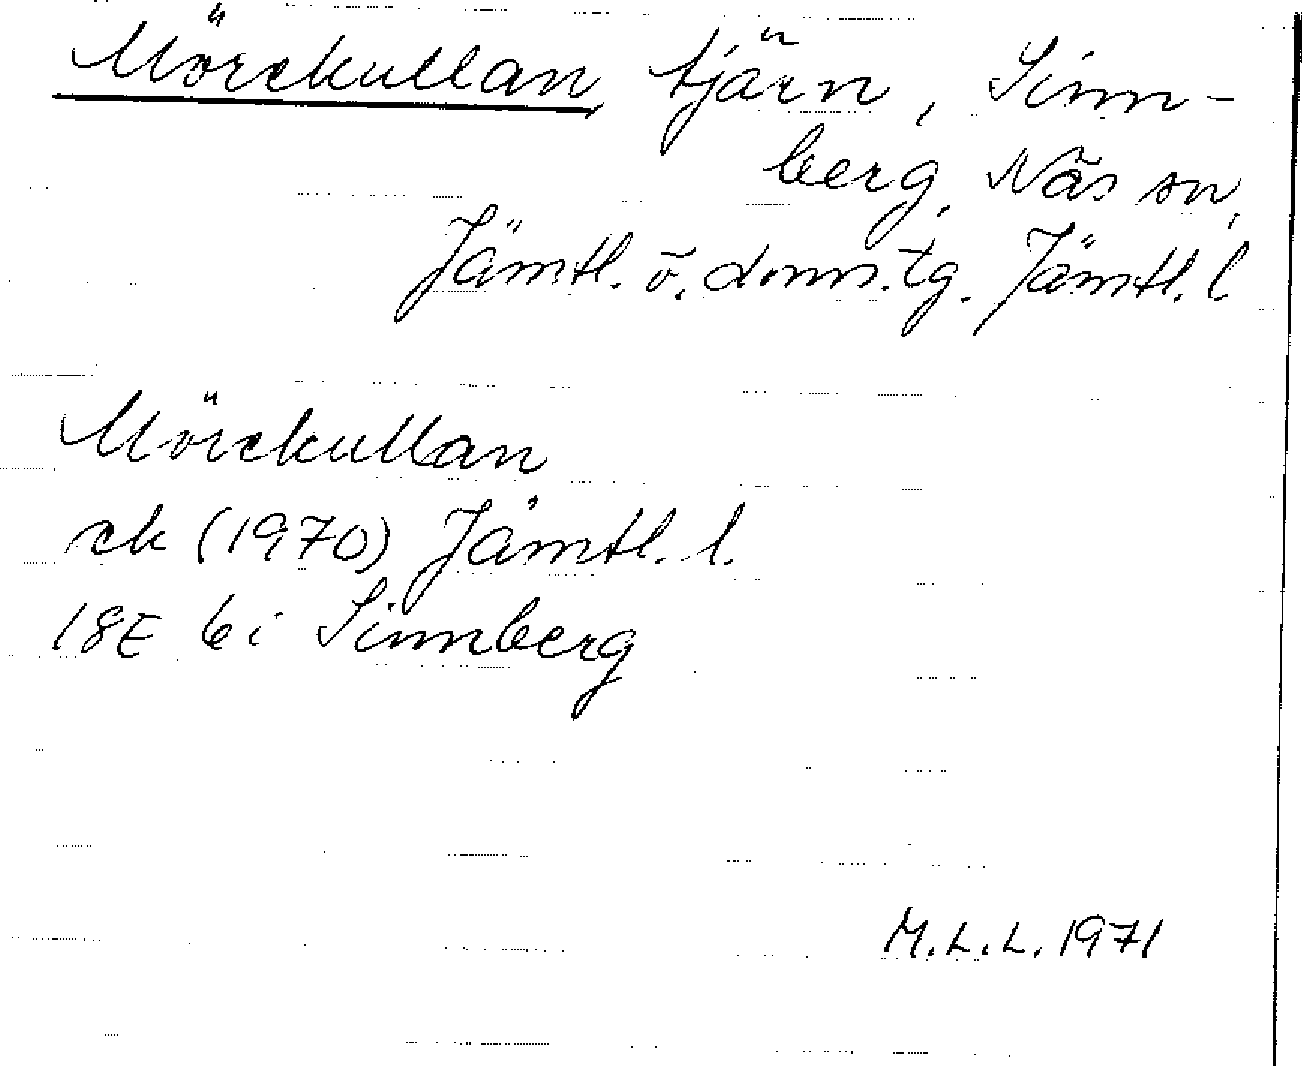 Mörckullan tjärn, Sinn-
berg, Näs sn,
Jämtl. ö. doms.tg. Jämtl. l
Mörckullan
ek (1970) Jämtl. l.
18E 6i Sinnberg
M.L.L. 1971